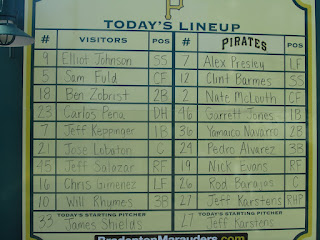 P
TODAY'S LINEUP
# VISITORS POS # PIRATES POS
9 Elliot Johnson SS 7 Alex Presley LF
5 Sam Fuld CF 12 Clint Barmes SS
18 Ben Zobrist 2B 2 Nate McLouth CF
23 Carlos Pena DH 46 Garrett Jones 1B
7 Jeff Keppinger 1B 36 Yamaico Navarro 2B
21 Jose Lobaton C 24 Pedro Alvarez 3B
45 Jeff Salazar RF 19 Nick Evans RF
16 Chris Gimenez LF 26 Rod Barajas C
10 Will Rhymes 3B 27 Jeff Karstens RHP
TODAY'S STARTING PITCHER TODAY'S STARTING PITCHER
33 James Shields 27 Jeff Karstens
BradentonMarauders.com